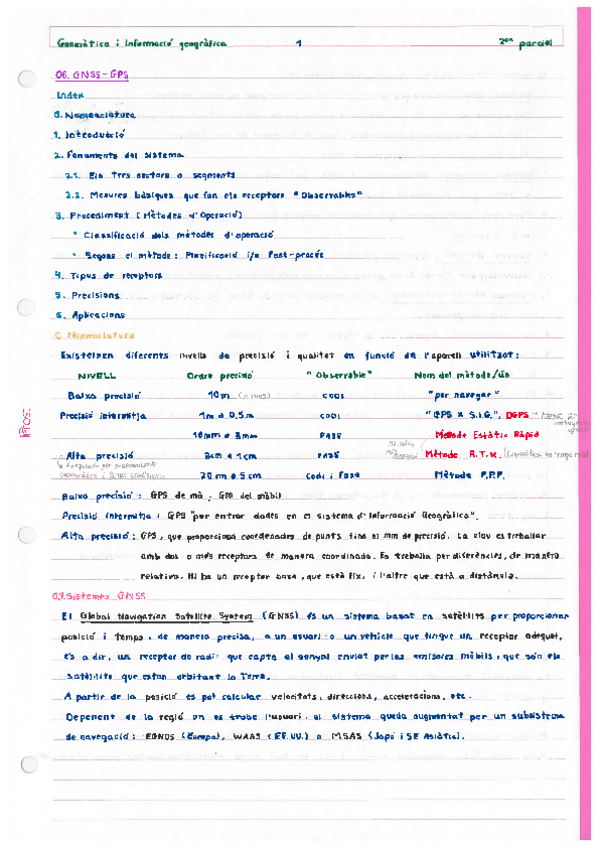 Geomàtica i Informació geogràfica 1 2on parcial
06. GNSS-GPS
Index
0. Nomenclatura
1. Introducció
2. Fonaments del sistema
2.1. Els tres sectors o segments
2.2. Mesures bàsiques que fan els receptors "Observables"
3. Procediment (Mètodes d'Operació)
* Classificació dels mètodes d'operació
* Segons el mètode: Planificació i/o Post-procés
4. Tipus de receptors
5. Precisions
6. Aplicacions
0. Nomenclatura
Existeixen diferents nivells de precisió i qualitat en funció de l'aparell utilitzat:
NIVELL Ordre precisió "Observable" Nom del mètode/ús
Baixa precisió 10m codi "per navegar"
Precisió intermitja 1m a 0,5m codi "GPS x S.I.G.", DGPS
10mm a 3mm FASE Mètode Estàtic Ràpid
Alta precisió 2cm a 1cm FASE Mètode R.T.K.
20cm a 5cm Codi i Fase Mètode P.P.P.
Baixa precisió: GPS de mà, GPS del mòbil
Precisió intermitja: GPS "per entrar dades en el sistema d'Informació Geogràfica".
Alta precisió: GPS, que proporciona coordenades de punts fins al mm de precisió. La clau es treballar
amb dos o més receptors de manera coordinada. Es treballa per diferències, de manera
relativa. Hi ha un receptor base, que està fix, i l'altre que està a distància.
0.1. Sistemes GNSS
El Global Navigation Satellite System (GNSS) és un sistema basat en satèl·lits per proporcionar
posició i temps, de manera precisa, a un usuari o un vehicle que tingue un receptor adequat,
és a dir, un receptor de radio que capta el senyal enviat per les emisores mòbils, que són els
satèl·lits que estan orbitant la Terra.
A partir de la posició es pot calcular velocitats, direccions, acceleracions, etc.
Depenent de la regió on es trobe l'usuari, el sistema queda augmentat per un subsistema
de navegació: EGNOS (Europa), WAAS (EE.UU.) o MSAS (Japó i SE Asiàtic).